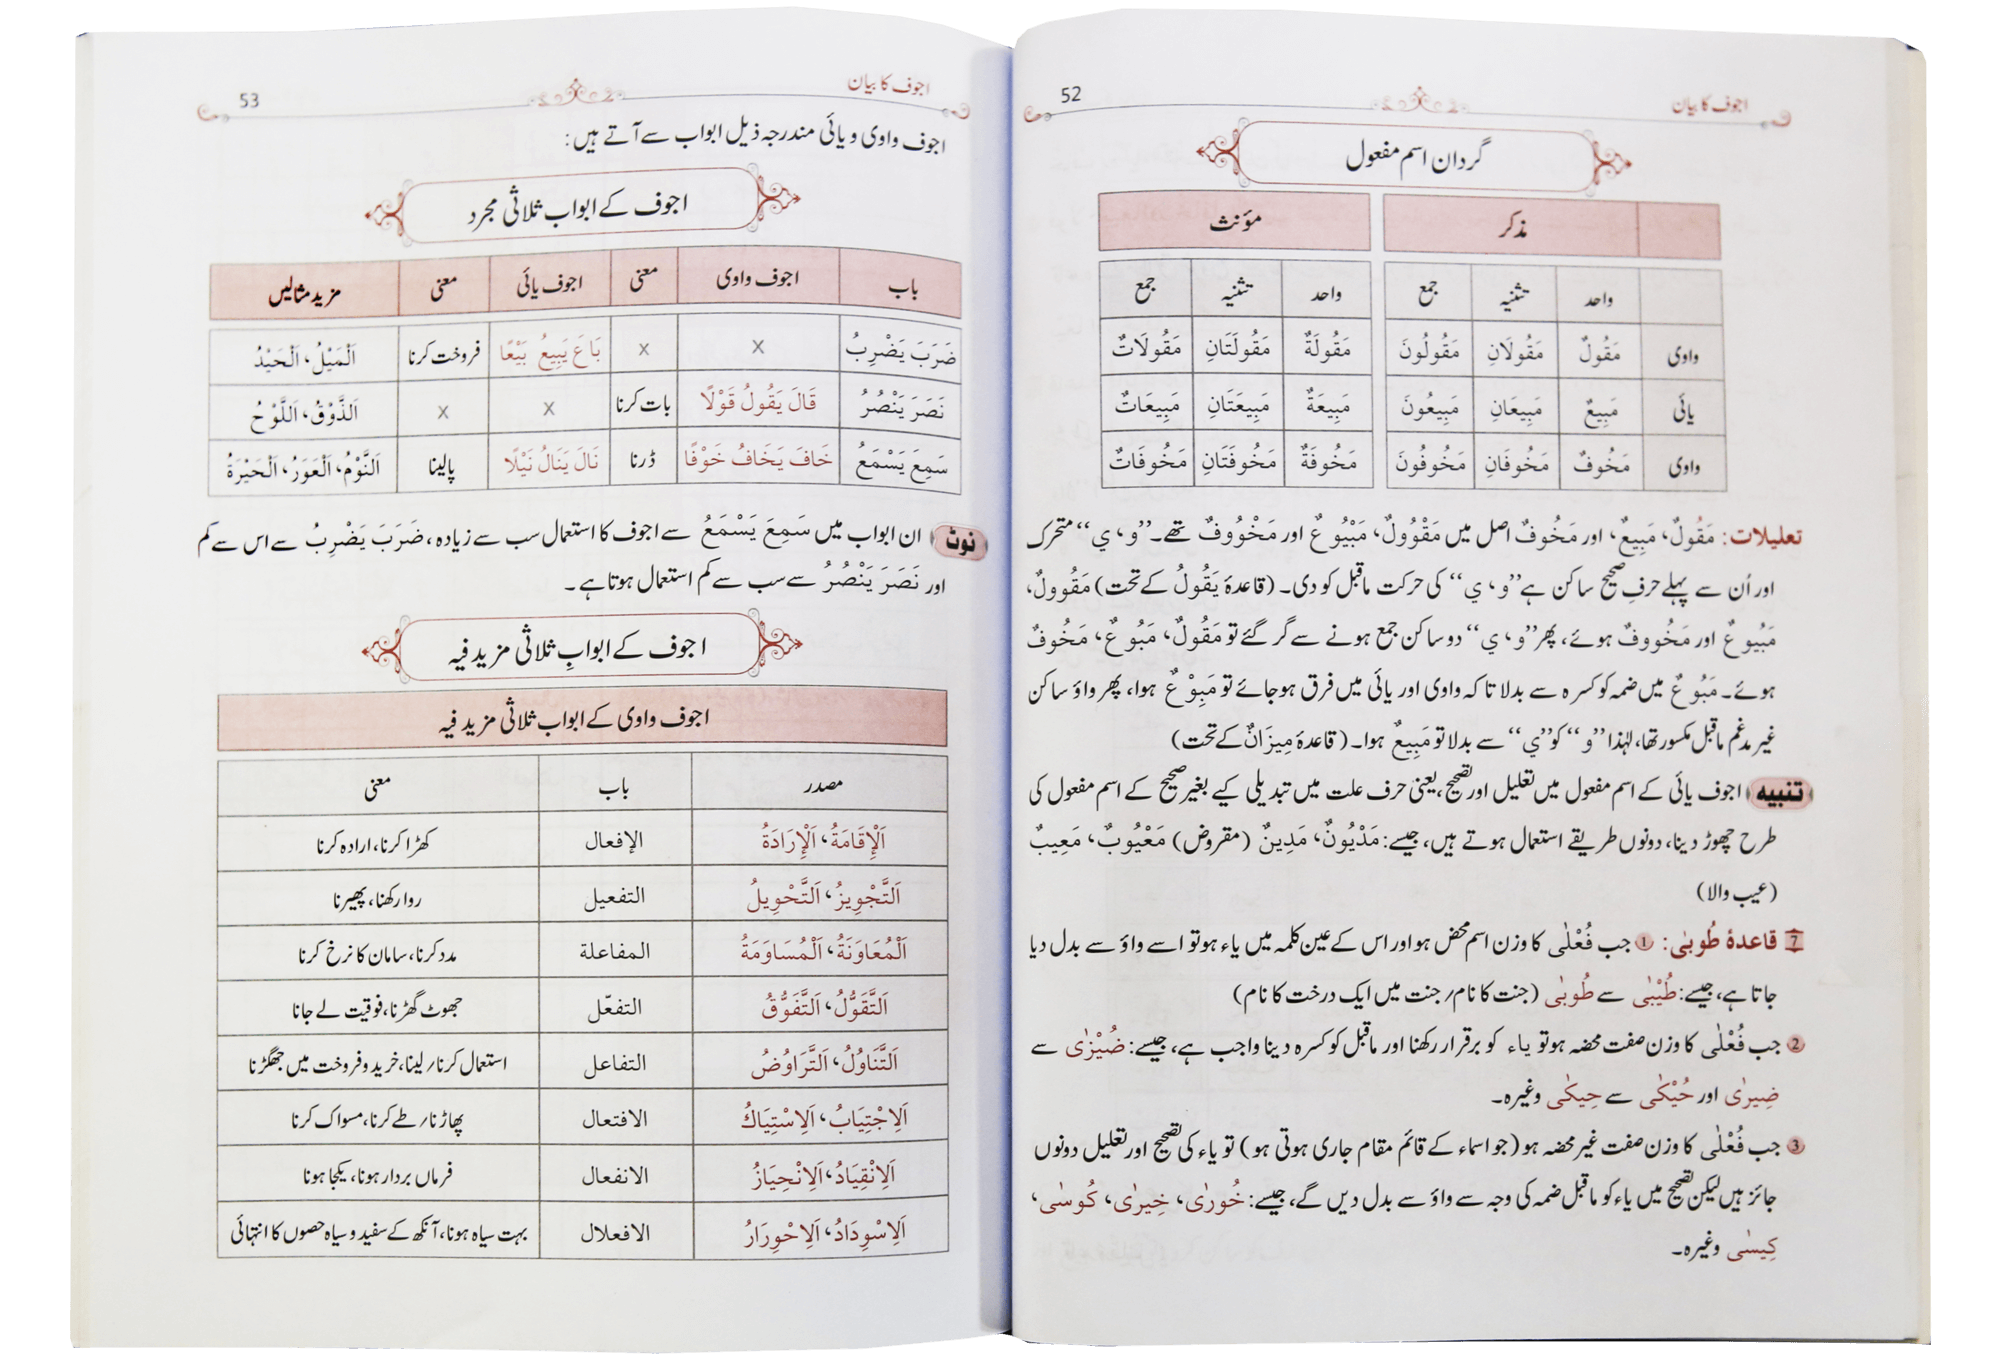 اجوف کا بیان 52
گردان اسم مفعول
مذکر مؤنث
واحد تثنیہ جمع واحد تثنیہ جمع
واوی مَقُولٌ مَقُولَانِ مَقُولُونَ مَقُولَةٌ مَقُولَتَانِ مَقُولَاتٌ
یائی مَبِيعٌ مَبِيعَانِ مَبِيعُونَ مَبِيعَةٌ مَبِيعَتَانِ مَبِيعَاتٌ
واوی مَخُوفٌ مَخُوفَانِ مَخُوفُونَ مَخُوفَةٌ مَخُوفَتَانِ مَخُوفَاتٌ
تعلیلات: مَقُولٌ، مَبِيعٌ، اور مَخُوفٌ اصل میں مَقْوُولٌ، مَبْيُوعٌ اور مَخْوُوفٌ تھے۔ ’’و، ي‘‘ متحرک
اور اُن سے پہلے حرفِ صحیح ساکن ہے ’’و، ي‘‘ کی حرکت ماقبل کو دی۔ (قاعدۂ يَقُولُ کے تحت) مَقُوولٌ،
مَبُيوعٌ اور مَخُووفٌ ہوئے، پھر ’’و، ي‘‘ دو ساکن جمع ہونے سے گر گئے تو مَقُولٌ، مَبُوعٌ، مَخُوفٌ
ہوئے۔ مَبُوعٌ میں ضمہ کو کسرہ سے بدلا تا کہ واوی اور یائی میں فرق ہو جائے تو مَبِوْعٌ ہوا، پھر واؤ ساکن
غیر مدغم ماقبل مکسور تھا، لہٰذا ’’و‘‘ کو ’’ي‘‘ سے بدلا تو مَبِيعٌ ہوا۔ (قاعدۂ مِيزَانٌ کے تحت)
تنبیہ اجوف یائی کے اسم مفعول میں تعلیل اور تصحیح، یعنی حرف علت میں تبدیلی کیے بغیر صحیح کے اسم مفعول کی
طرح چھوڑ دینا، دونوں طریقے استعمال ہوتے ہیں، جیسے: مَدْيُونٌ، مَدِينٌ (مقروض) مَعْيُوبٌ، مَعِيبٌ
(عیب والا)
7 قاعدۂ طُوبٰى: 1 جب فُعْلٰى کا وزن اسم محض ہو اور اس کے عین کلمہ میں یاء ہو تو اسے واؤ سے بدل دیا
جاتا ہے، جیسے: طُيْبٰى سے طُوبٰى (جنت کا نام/ جنت میں ایک درخت کا نام)
2 جب فُعْلٰى کا وزن صفت محضہ ہو تو یاء کو برقرار رکھنا اور ماقبل کو کسرہ دینا واجب ہے، جیسے: ضُيْزٰى سے
ضِيزٰى اور حُيْكٰى سے حِيكٰى وغیرہ۔
3 جب فُعْلٰى کا وزن صفت غیر محضہ ہو (جو اسماء کے قائم مقام جاری ہوتی ہو) تو یاء کی تصحیح اور تعلیل دونوں
جائز ہیں لیکن تصحیح میں یاء کو ماقبل ضمہ کی وجہ سے واؤ سے بدل دیں گے، جیسے: خُورٰى، خِيرٰى، كُوسٰى،
كِيسٰى وغیرہ۔
اجوف کا بیان 53
اجوف واوی و یائی مندرجہ ذیل ابواب سے آتے ہیں:
اجوف کے ابواب ثلاثی مجرد
باب اجوف واوی معنی اجوف یائی معنی مزید مثالیں
ضَرَبَ يَضْرِبُ x x بَاعَ يَبِيعُ بَيْعًا فروخت کرنا اَلْمَيْلُ، اَلْحَيْدُ
نَصَرَ يَنْصُرُ قَالَ يَقُولُ قَوْلًا بات کرنا x x اَلذَّوْقُ، اَللَّوْحُ
سَمِعَ يَسْمَعُ خَافَ يَخَافُ خَوْفًا ڈرنا نَالَ يَنَالُ نَيْلًا پالینا اَلنَّوْمُ، اَلْعَوَرُ، اَلْحَيْرَةُ
نوٹ ان ابواب میں سَمِعَ يَسْمَعُ سے اجوف کا استعمال سب سے زیادہ، ضَرَبَ يَضْرِبُ سے اس سے کم
اور نَصَرَ يَنْصُرُ سے سب سے کم استعمال ہوتا ہے۔
اجوف کے ابوابِ ثلاثی مزید فیہ
اجوف واوی کے ابواب ثلاثی مزید فیہ
مصدر باب معنی
اَلْإِقَامَةُ، اَلْإِرَادَةُ الإفعال کھڑا کرنا، ارادہ کرنا
اَلتَّجْوِيزُ، اَلتَّحْوِيلُ التفعيل روا رکھنا، پھیرنا
اَلْمُعَاوَنَةُ، اَلْمُسَاوَمَةُ المفاعلة مدد کرنا، سامان کا نرخ کرنا
اَلتَّقَوُّلُ، اَلتَّفَوُّقُ التفعّل جھوٹ گھڑنا، فوقیت لے جانا
اَلتَّنَاوُلُ، اَلتَّرَاوُضُ التفاعل استعمال کرنا/ لینا، خرید و فروخت میں جھگڑنا
اَلِاجْتِيَابُ، اَلِاسْتِيَاكُ الافتعال پھاڑنا/ طے کرنا، مسواک کرنا
اَلِانْقِيَادُ، اَلِانْحِيَازُ الانفعال فرماں بردار ہونا، یکجا ہونا
اَلِاسْوِدَادُ، اَلِاحْوِرَارُ الافعلال بہت سیاہ ہونا، آنکھ کے سفید و سیاہ حصوں کا انتہائی